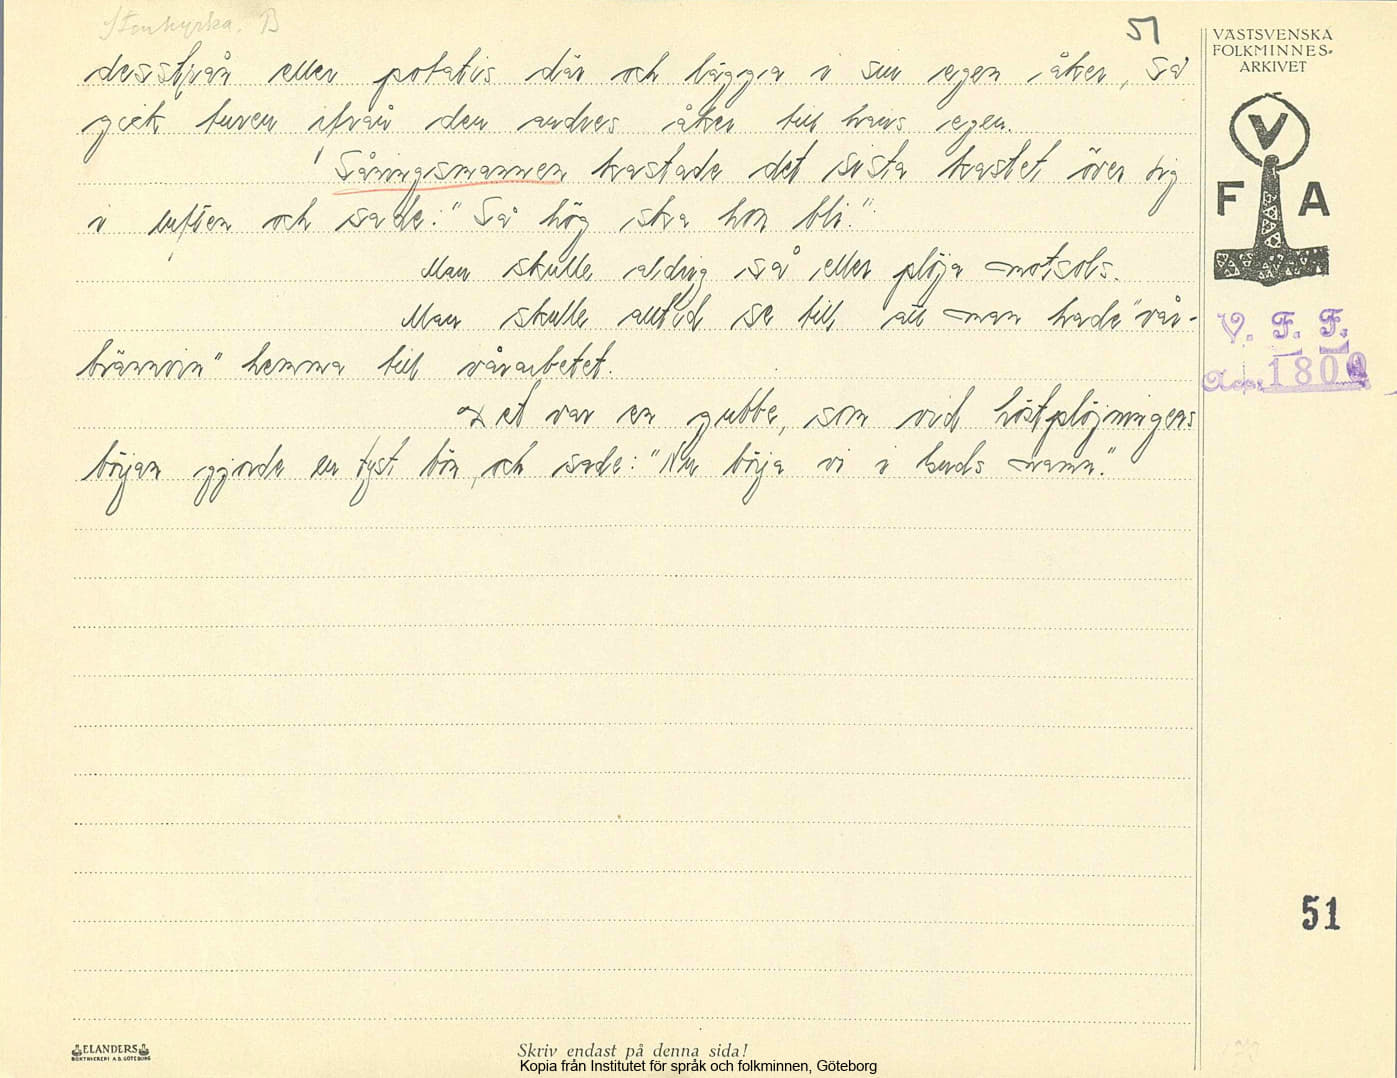 Stenkyrka. B
51
VÄSTSVENSKA
FOLKMINNES-
ARKIVET
desstjvån eller potatis där och lägga i sin egen åker, så
gick turen ifrån den andres åker till hans egen.
Såningsmannen kastade det sista kastet över sig
i luften och sade: "Så hög ska hon bli."
Man skulle aldrig så eller plöja motsols.
Man skulle alltid se till att man hade "vår-
brännvin" hemma till vårarbetet.
Det var en gubbe, som vid höstplöjningens
början gjorde en tyst bön, och sade: "Nu börja vi i Guds namn."
V
F A
V. F. F.
Acc. 1800
51
ELANDERS
BOKTRYCKERI A.B. GÖTEBORG
Skriv endast på denna sida!
Kopia från Institutet för språk och folkminnen, Göteborg